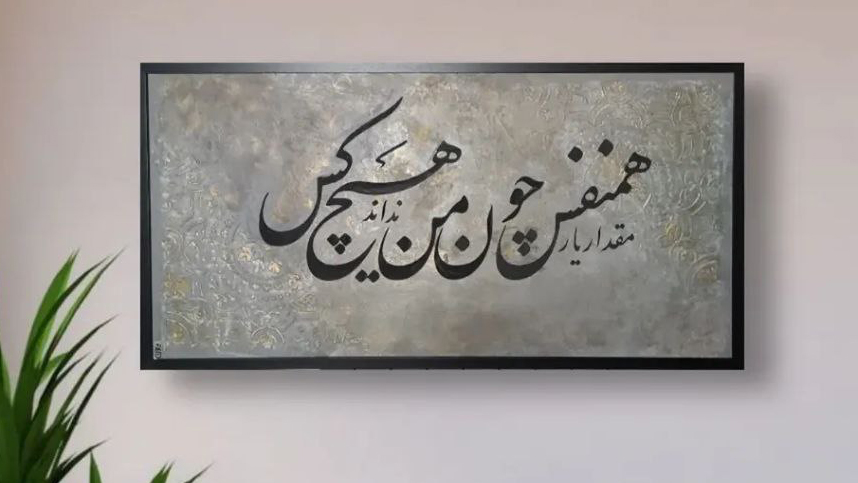 مقدار یار همنفس چون من نداند هیچ کس